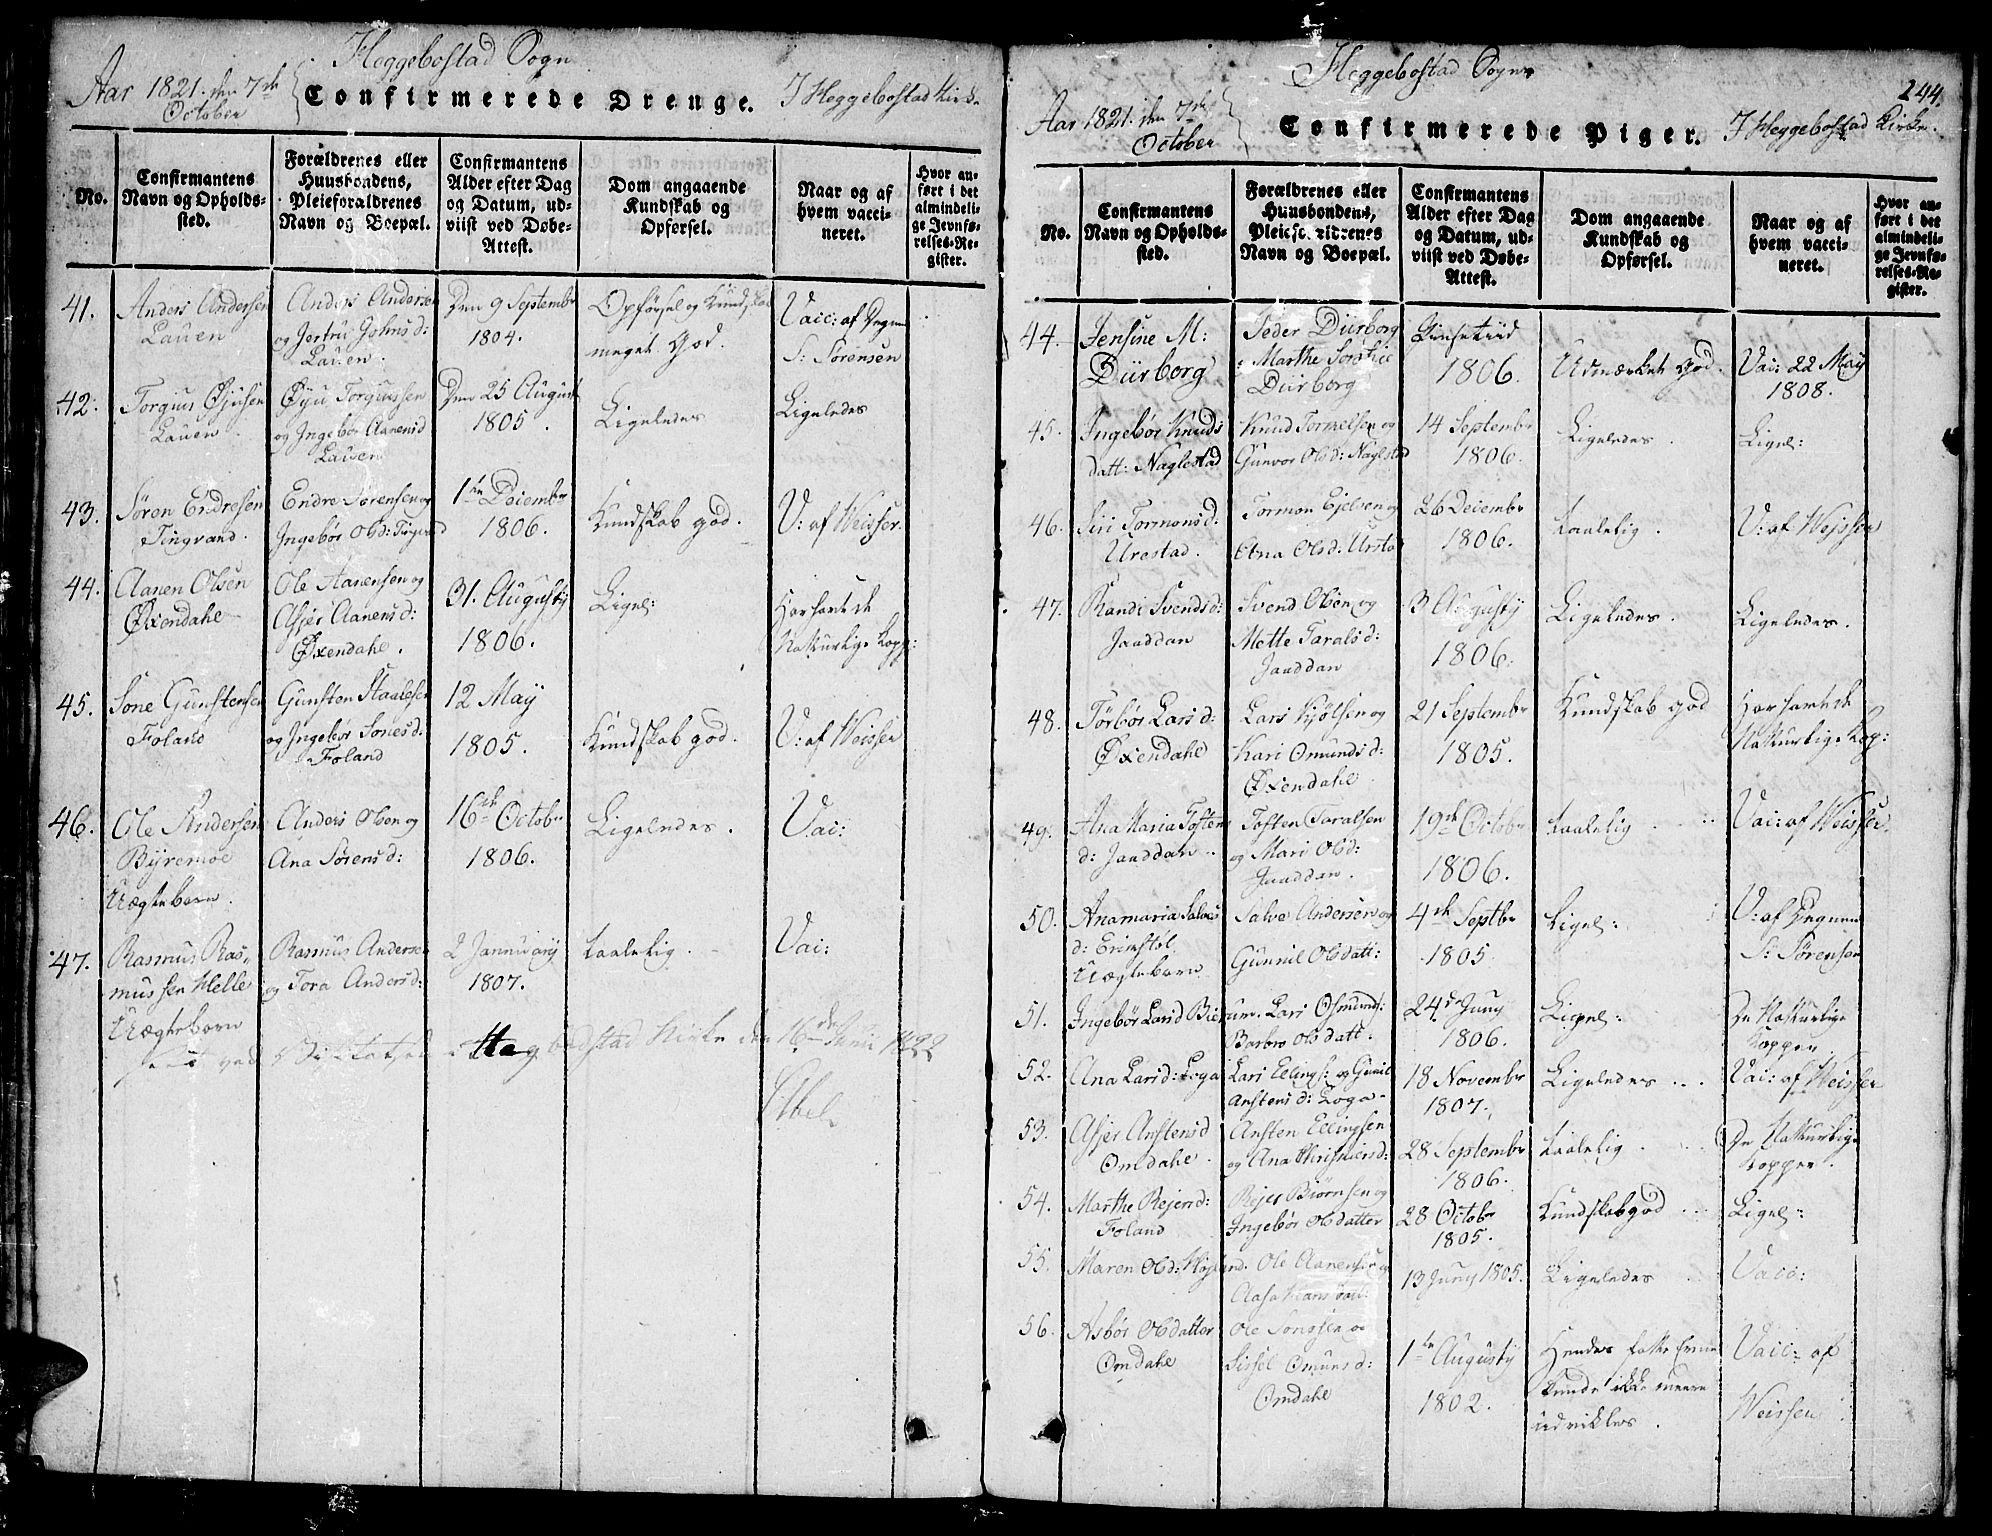 Heggebostad Sogn
Aar 1821. den 7de
October
Confirmerede Drenge.
I Heggebostad Kirke
No.
Confirmantens
Navn og Opholds-
sted.
Forældrenes eller
Huusbondens,
Pleieforaldrenes
Navn og Boepæl.
Confirmantens
Alder efter Dag
og Datum, ud-
viist ved Døbe-
Attest.
Dom angaaende
Kundskab og
Opførsel.
Naar og af
hvem vacci-
neret.
Hvor an-
ført i det
almindeli-
ge Jevnfø-
relses-Re-
gister.
41.
Anders Andersen
Lauen
Anders Andersen
og Jertru Johnsd:
Lauen.
Den 9 Septembr
1804.
Opførsel og Kundskab
meget God.
Vacc: af Degnen
S: Sørensen
42.
Torgius Øjusen
Lauen.
Øyu Torgiussen
og Ingebør Aanensd
Lauen
Den 25 August
1805.
Ligeledes
Ligeledes
43.
Søren Endresen
Tingvand.
Endre Sørensen og
Ingebør Olsd: Tingvand
1ste Decembr
1806.
Kundskab god.
V: af Weisser.
44.
Aanen Olsen
Øxendahl
Ole Aanensen og
Asjer Aanensd:
Øxendahl.
31. Augusty
1806.
Ligel:
Har havt de
Naturlige Kopp:
45.
Sone Gunstensen
Foland
Gunsten Staalesen
og Ingebør Sonesd:
Foland
12 May
1805.
Kundskab god.
V: af Weisser
46.
Ole Andersen
Byremoe
Uægteborn.
Anders Olsen og
Ana Sørensd:
16de Octobr
1806.
Ligeledes.
Vac:
47.
Rasmus Ras-
mussen Helle
Uægteborn
Rasmus Andersen
og Tora Andersd:
2 January
1807.
taalelig.
Vac:
ved Visitatsen i Heggebostad Kirke den 16de Juni 1822
Heggebostad Sogn
244.
Aar 1821. den 7de
October
Confirmerede Piger.
I Heggebostad Kirke.
No.
Confirmantens
Navn og Opholds-
sted.
Forældrenes eller
Huusbondens,
Pleieforældrenes
Navn og Boepæl.
Confirmantens
Alder efter Dag
og Datum, ud-
viist ved Døbe-
Attest.
Dom angaaende
Kundskab og
Opførsel.
Naar og af
hvem vacci-
neret.
Hvor an-
ført i det
almindeli-
ge Jevnfø-
relses-Re-
gister.
44.
Jensine M:
Dürborg
Peder Dürborg
Marthe Sophie
Dürborg
Pinsetiid
1806.
Udmærket God.
Vac: 22 May
1808.
45.
Ingebør Knuds
datt: Naglestad
Knud Tormelsen og
Gunvor Olsd: Naglestad
14 Septembr
1806.
Ligeledes.
Ligel:
46.
Siri Tormonsd:
Urestad.
Tormon Ejelsen og
Ana Olsd: Urstad
26 Decembr
1806.
taalelig.
V: af Weissen
47.
Randi Svendsd:
Jaaddan
Svend Olsen og
Mette Taralsd:
Jaaddan
3 Augusty
1806.
Ligeledes.
Ligeledes.
48.
Tørbør Larsd:
Øxendahl
Lars Kjølsen og
Kari Omundsd:
Øxendahl.
21 Septembr
1805.
Kundskab god
Har havt de
Naturlige Kop:
49.
Ana Maria Tosten
d: Jaaddan.
Tosten Taralsen
og Mari Olsd:
Jaaddan.
19de Octobr
1806.
taalelig
Vac: af Weisser.
50.
Anamaria Salves
d: Erikstøl
Uægteborn
Salve Andersen og
Gunnil Olsdatt:
4de Septbr
1805.
Ligel:
V: af Degnen
S: Sørensen
51.
Ingebør Larsd Bierum.
Lars Osmunds:
Barbro Olsdatt.
24de Juny
1806.
Ligel:
De Naturlige
Kopper
52.
Ana Larsd: Loga
Lars Ellings: og Gunil
Anstensd: Loga.
18 Novembr
1807.
Ligeledes
Vac: af Weisser
53.
Asjer Anstensd
Omdahl.
Ansten Ellingsen
og Ana
28 Septembr
1806.
taalelig
De Naturlige
Kopper.
54.
Marthe Rejersd:
Foland
Rejer Biørnsen og
Ingebør Olsdatter
28 Octobr
1805.
Kundskab god
Ligel:
55.
Maren Olsd:
Ole Aanensen og
Aasa
13 Juny 1805.
Ligeledes
Vacc:
56.
Asbør Olsdatter
Omdahl
Ole Sonesen og
Sissel Omunsd:
Omdahl
1ste Augusty
1802.
Hendes
kunde ikke meere
udvikles.
Vacc: af
Weissen